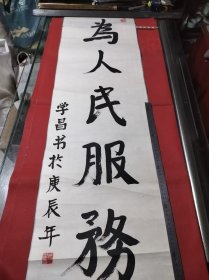 為人民服務
学昌书於庚辰年